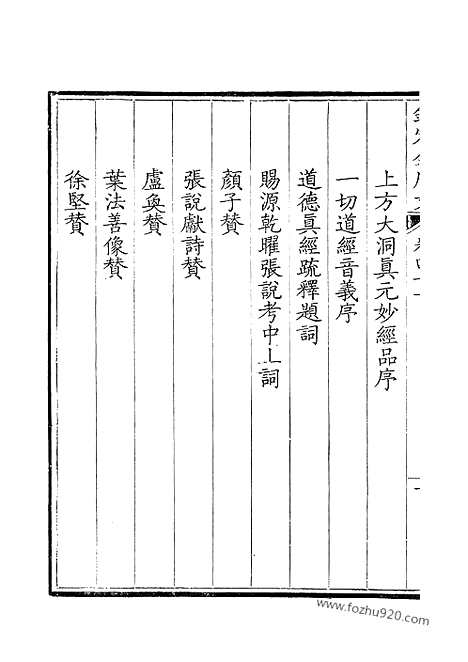 上方大洞眞元妙經品序
一切道經音義序
道德眞經疏釋題詞
賜源乾曜張說考中上詞
顏子贊
張說獻詩贊
盧奐贊
葉法善像贊
徐堅贊
www.fozhu920.com